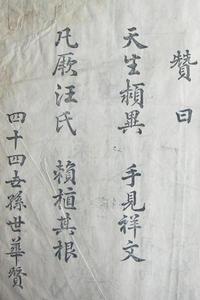 贊曰
天生頴異 手見祥文
凡厥汪氏 賴植其根
四十四世孫世華贊